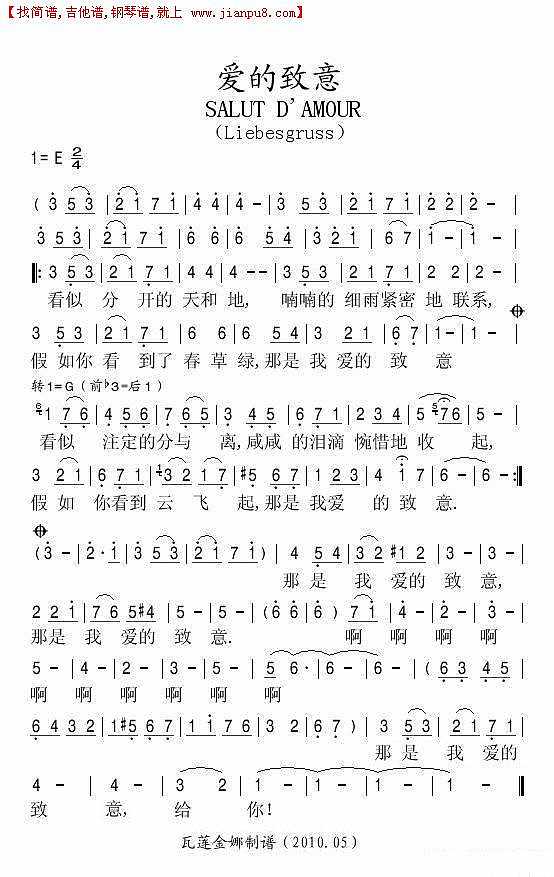 【找简谱,吉他谱,钢琴谱,就上 www.jianpu8.com】
爱的致意
SALUT D'AMOUR
(Liebesgruss)
1=E 2/4
( 3 5 3 | 2 1 7 1 | 4 4 | 4 - | 3 5 3 | 2 1 7 1 | 2 2 | 2 - |
3 5 3 | 2 1 7 1 | 6 6 | 6 5 4 | 3 2 1 | 6 7 | 1 - | 1 - )
‖: 3 5 3 | 2 1 7 1 | 4 4 | 4 - | 3 5 3 | 2 1 7 1 | 2 2 | 2 - |
看似 分 开的 天和 地, 喃喃的 细雨紧密 地 联系,
3 5 3 | 2 1 7 1 | 6 6 | 6 5 4 | 3 2 1 | 6 7 | 1 - | 1 - |
假 如你 看 到了 春 草 绿,那是 我 爱的 致 意
转1=G(前♭3=后1)
1 7 6 | 4 5 6 | 7 6 5 | 3 4 5 | 6 7 1 | 7 1 2 | 5 - | 5 7 6 |
看似 注定的分与 离,咸咸 的泪滴 惋惜地 收 起,
3 2 1 | 6 7 1 | 3 2 1 7 | #5 6 7 | 1 2 3 | 4 2 | 6 - | 6 - :‖
假 如 你看到 云 飞 起,那是 我爱 的 致意.
(3 - | 2· 1 | 3 5 3 | 2 1 7 1 ) | 4 5 4 | 3 2 #1 2 | 3 - | 3 - |
那 是 我 爱的 致 意,
2 2 1 | 7 6 5 #4 | 5 - | 5 - | (6 6 | 6 6) | 7 1 | 4 - | 3 - |
那是 我 爱的 致 意. 啊 啊 啊 啊
5 - | 4 - | 2 - | 3 - | 3 - | 5 6· | 6 - | 6 - | (6 3 4 5 |
啊 啊 啊 啊 啊 啊
6 4 3 2 | 1 #5 6 7 | 1 2 | 3 - | 3 - | 3 - ) | 3 5 3 | 2 1 7 1 |
那 是 我 爱的
4 - | 4 - | 3 2 | 1 - | 1 - | 1 - | 1 - ‖
致 意, 给 你!
瓦莲金娜制谱(2010.05)